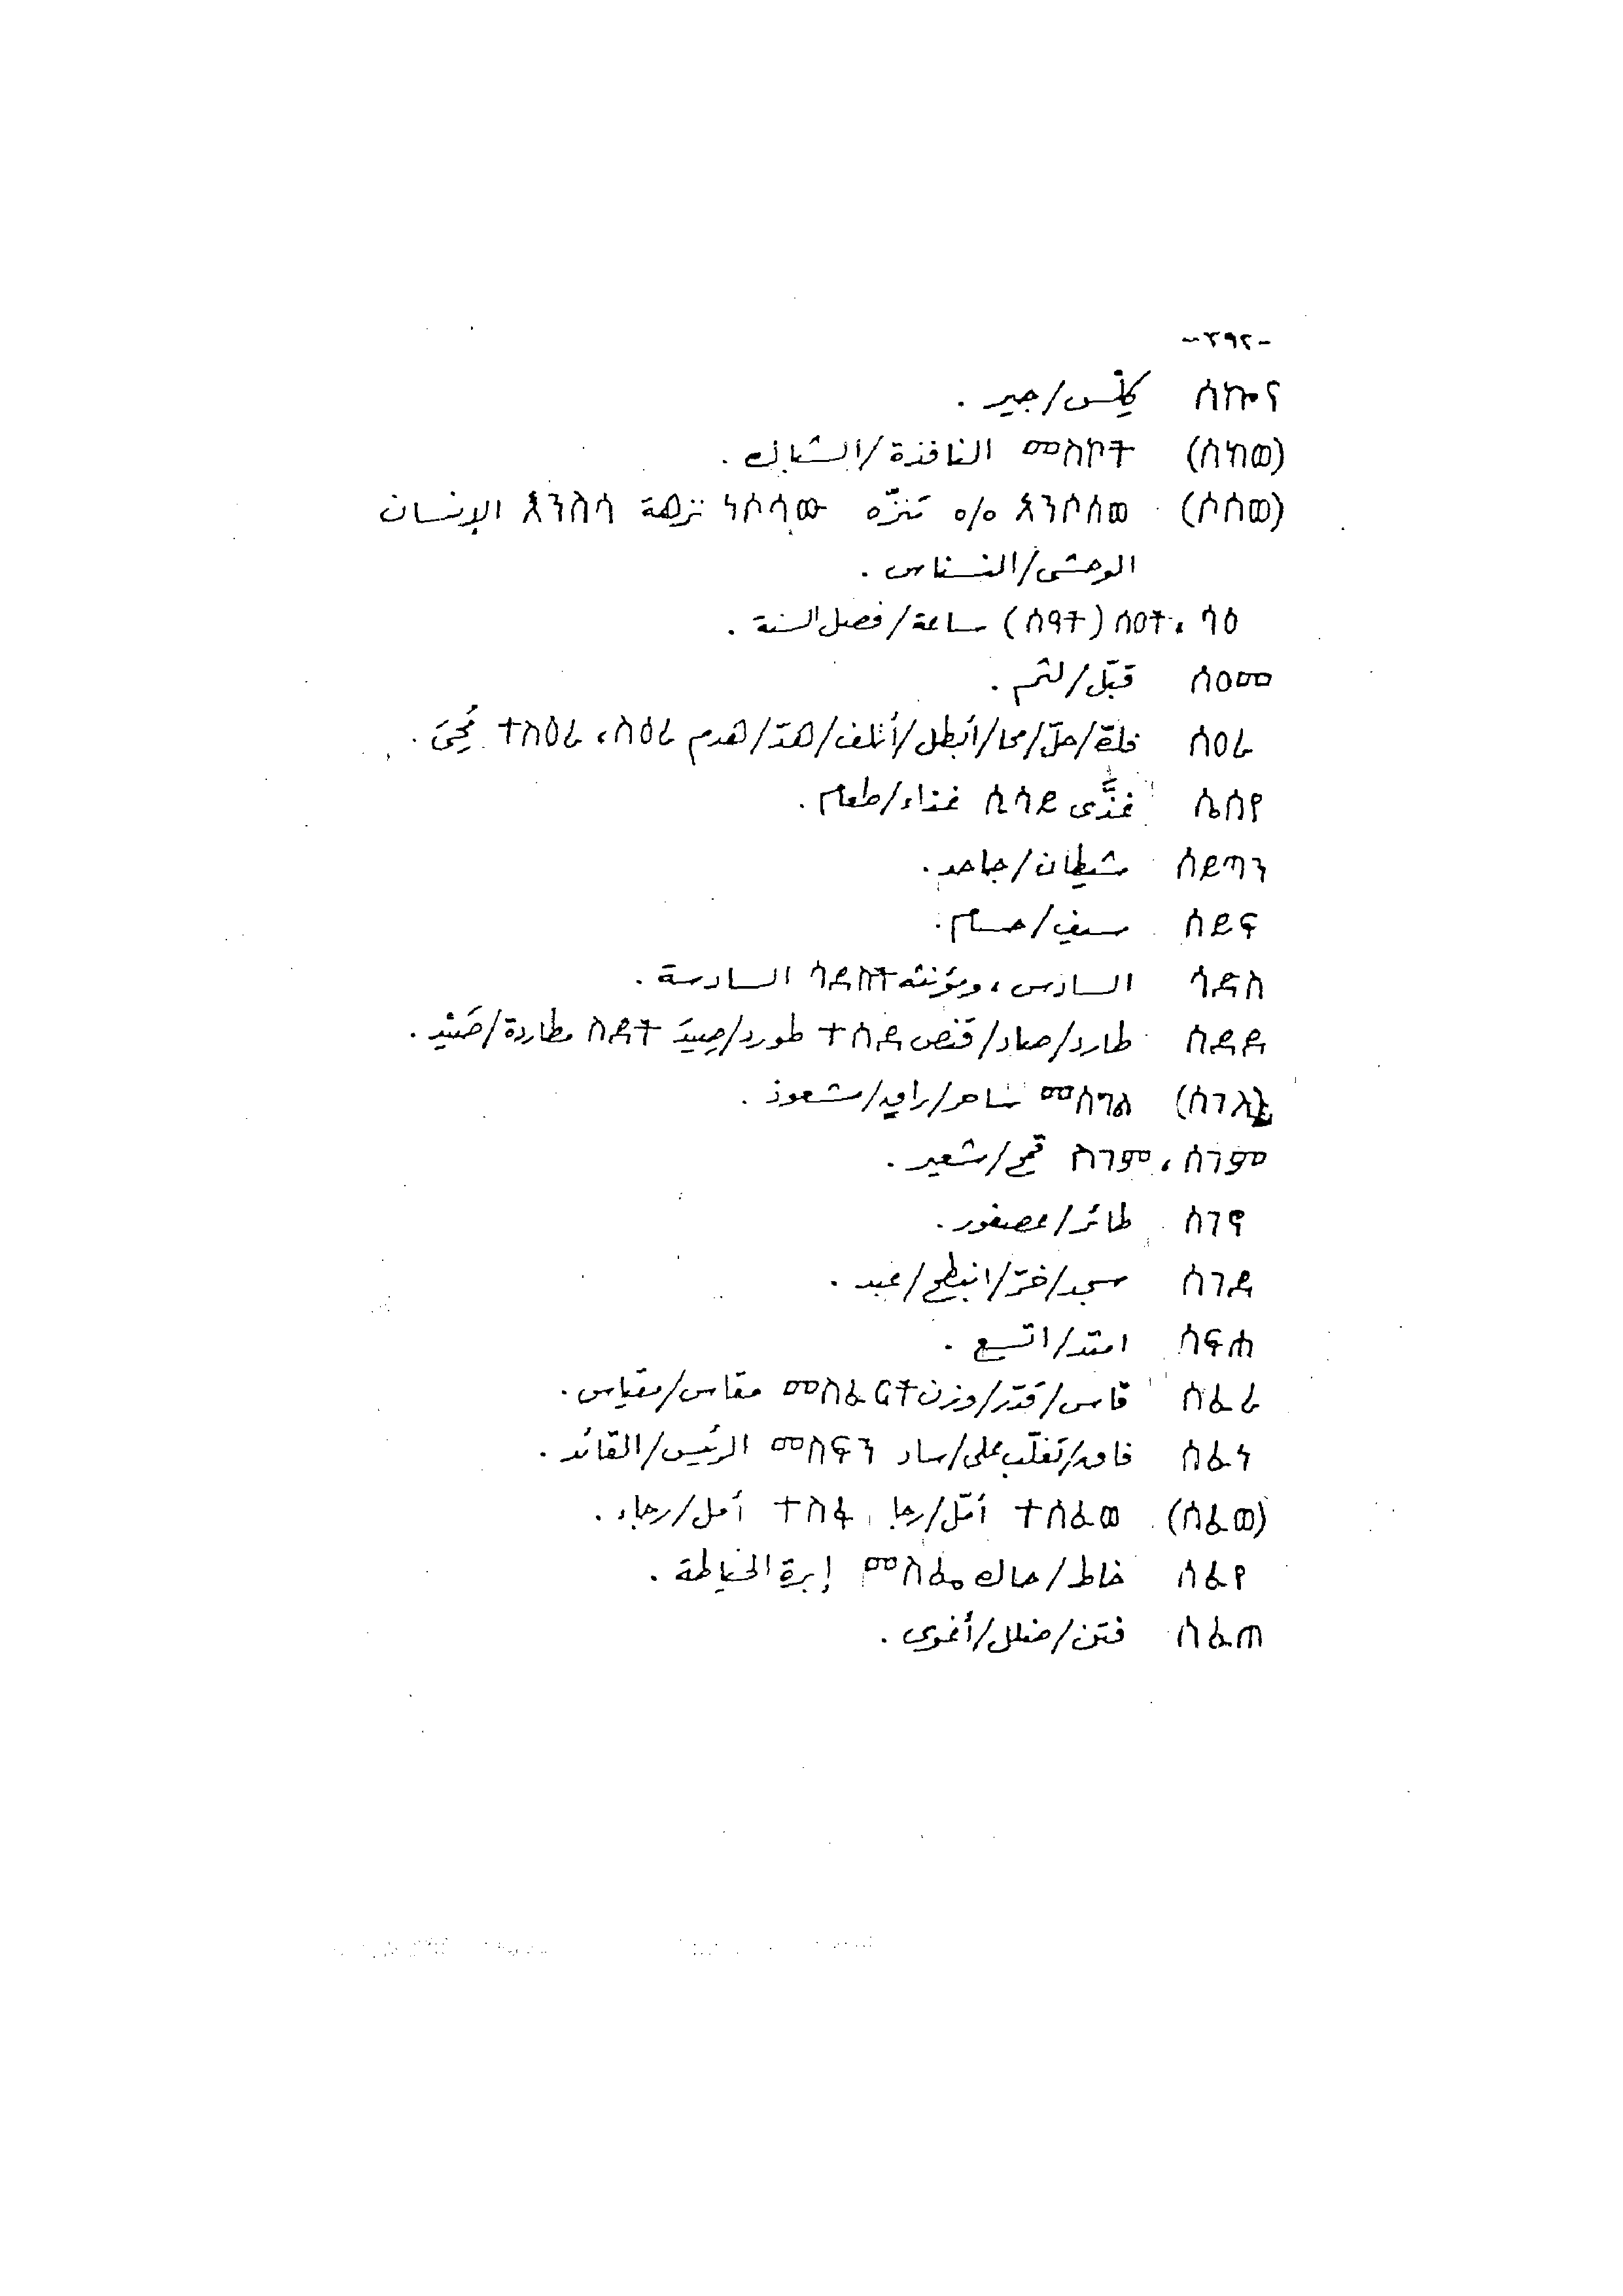 -٣٩٢-
كِلْس/جير .
(ሰከወ) መስኮት النافذة/الشباك .
(ሰሰወ) አንሶሰወ تنزّه ንሶሳው نزهة አንስሳ الإنسان
الوحشى/النسناس .
ሳዐ، ሰዐት (ሰዓት) ساعة/فصل السنة .
ሰዐመ قبّل/لثم .
ሰዐረ حلّ/محا/أبطل/أتلف/هدّ/هدم ስዕረ، ተስዕረ مُحِىَ .
ሴሰየ غذَّى ሲሳይ غذاء/طعام .
ሰይጣን شيطان/جاحد .
ሰይፍ سيف/حسام .
ሳድስ السادس، ومؤنثه ሳድስት السادسة .
ሰደደ طارد/صاد/قنص ተሰደ طورد/صِيدَ ስደት مطاردة/صَيْد .
(ሰገለ) መሰግል ساحر/راق/شعوذ .
ሰገም، ስገም قمح/شعير .
طائر/عصفور .
ሰገደ سجد/خرّ/انبطح/عبد .
ሰፍሐ امتد/اتسع .
ሰፈረ قاس/قدّر/وزن መስፈርት مقاس/مقياس .
ሰፈነ فاق/تغلّب على/ساد መስፍን الرئيس/القائد .
(ሰፈወ) ተሰፈወ أمّل/رجا، ተስፋ أمل/رجاء .
ሰፈየ خاط/حاك መስፌ إبرة الخياطة .
ሰፈጠ فتن/ضلل/أغوى .